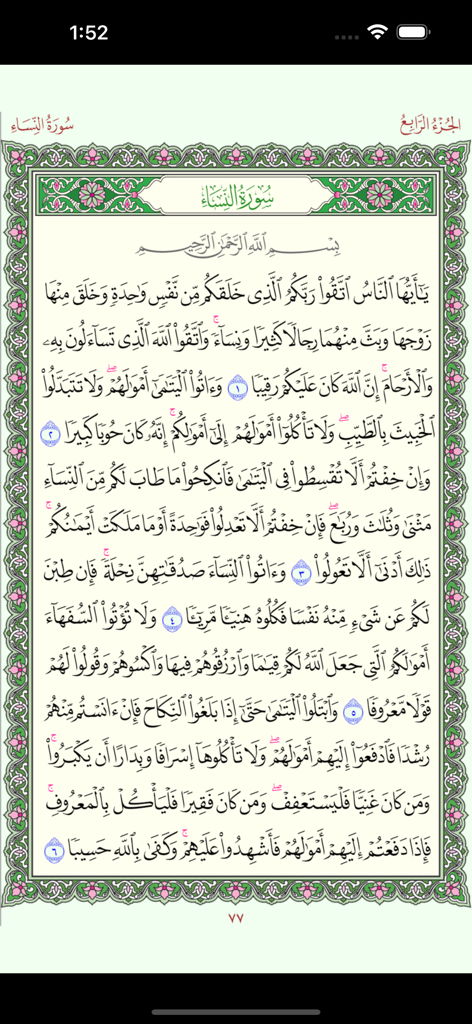 1:52
سُورَةُ النِّسَاءِ
الجُزْءُ الرَّابِعُ
سُورَةُ النِّسَاءِ
بِسْمِ ٱللَّهِ ٱلرَّحْمَٰنِ ٱلرَّحِيمِ
يَٰٓأَيُّهَا ٱلنَّاسُ ٱتَّقُوا۟ رَبَّكُمُ ٱلَّذِى خَلَقَكُم مِّن نَّفْسٍ وَٰحِدَةٍ وَخَلَقَ مِنْهَا
زَوْجَهَا وَبَثَّ مِنْهُمَا رِجَالًا كَثِيرًا وَنِسَآءً ۚ وَٱتَّقُوا۟ ٱللَّهَ ٱلَّذِى تَسَآءَلُونَ بِهِۦ
وَٱلْأَرْحَامَ ۚ إِنَّ ٱللَّهَ كَانَ عَلَيْكُمْ رَقِيبًا ١ وَءَاتُوا۟ ٱلْيَتَٰمَىٰٓ أَمْوَٰلَهُمْ ۖ وَلَا تَتَبَدَّلُوا۟
ٱلْخَبِيثَ بِٱلطَّيِّبِ ۖ وَلَا تَأْكُلُوٓا۟ أَمْوَٰلَهُمْ إِلَىٰٓ أَمْوَٰلِكُمْ ۚ إِنَّهُۥ كَانَ حُوبًا كَبِيرًا ٢
وَإِنْ خِفْتُمْ أَلَّا تُقْسِطُوا۟ فِى ٱلْيَتَٰمَىٰ فَٱنكِحُوا۟ مَا طَابَ لَكُم مِّنَ ٱلنِّسَآءِ
مَثْنَىٰ وَثُلَٰثَ وَرُبَٰعَ ۖ فَإِنْ خِفْتُمْ أَلَّا تَعْدِلُوا۟ فَوَٰحِدَةً أَوْ مَا مَلَكَتْ أَيْمَٰنُكُمْ ۚ
ذَٰلِكَ أَدْنَىٰٓ أَلَّا تَعُولُوا۟ ٣ وَءَاتُوا۟ ٱلنِّسَآءَ صَدُقَٰتِهِنَّ نِحْلَةً ۚ فَإِن طِبْنَ
لَكُمْ عَن شَىْءٍ مِّنْهُ نَفْسًا فَكُلُوهُ هَنِيٓـًٔا مَّرِيٓـًٔا ٤ وَلَا تُؤْتُوا۟ ٱلسُّفَهَآءَ
أَمْوَٰلَكُمُ ٱلَّتِى جَعَلَ ٱللَّهُ لَكُمْ قِيَٰمًا وَٱرْزُقُوهُمْ فِيهَا وَٱكْسُوهُمْ وَقُولُوا۟ لَهُمْ
قَوْلًا مَّعْرُوفًا ٥ وَٱبْتَلُوا۟ ٱلْيَتَٰمَىٰ حَتَّىٰٓ إِذَا بَلَغُوا۟ ٱلنِّكَاحَ فَإِنْ ءَانَسْتُم مِّنْهُمْ
رُشْدًا فَٱدْفَعُوٓا۟ إِلَيْهِمْ أَمْوَٰلَهُمْ ۖ وَلَا تَأْكُلُوهَآ إِسْرَافًا وَبِدَارًا أَن يَكْبَرُوا۟ ۚ
وَمَن كَانَ غَنِيًّا فَلْيَسْتَعْفِفْ ۖ وَمَن كَانَ فَقِيرًا فَلْيَأْكُلْ بِٱلْمَعْرُوفِ ۚ
فَإِذَا دَفَعْتُمْ إِلَيْهِمْ أَمْوَٰلَهُمْ فَأَشْهِدُوا۟ عَلَيْهِمْ ۚ وَكَفَىٰ بِٱللَّهِ حَسِيبًا ٦
٧٧